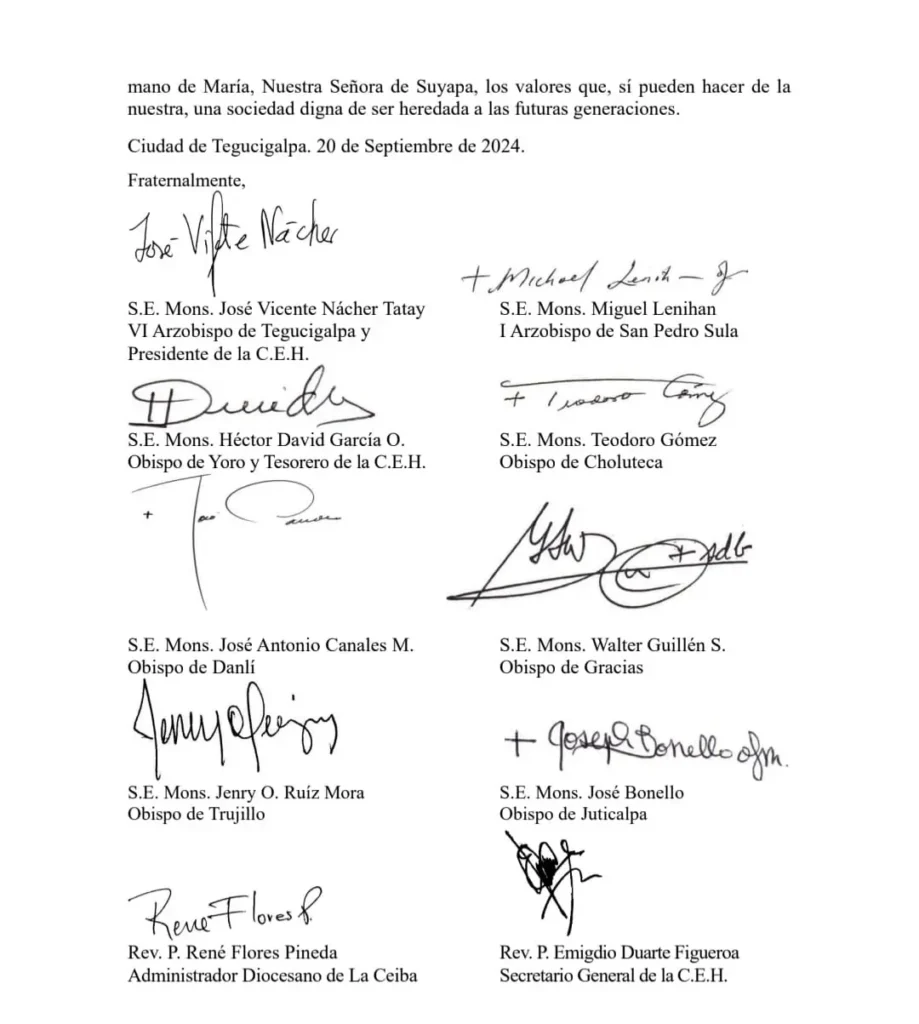 mano de María, Nuestra Señora de Suyapa, los valores que, sí pueden hacer de la
nuestra, una sociedad digna de ser heredada a las futuras generaciones.
Ciudad de Tegucigalpa. 20 de Septiembre de 2024.
Fraternalmente,
José Vite Nácher
+ Michael Lenih
S.E. Mons. José Vicente Nácher Tatay
VI Arzobispo de Tegucigalpa y
Presidente de la C.E.H.
S.E. Mons. Miguel Lenihan
I Arzobispo de San Pedro Sula
+ Teodoro Gómez
S.E. Mons. Héctor David García O.
Obispo de Yoro y Tesorero de la C.E.H.
S.E. Mons. Teodoro Gómez
Obispo de Choluteca
+ sdb
S.E. Mons. José Antonio Canales M.
Obispo de Danlí
S.E. Mons. Walter Guillén S.
Obispo de Gracias
Jenry
+ Joseph Bonello ofm.
S.E. Mons. Jenry O. Ruíz Mora
Obispo de Trujillo
S.E. Mons. José Bonello
Obispo de Juticalpa
Rene Flores P.
Rev. P. René Flores Pineda
Administrador Diocesano de La Ceiba
Rev. P. Emigdio Duarte Figueroa
Secretario General de la C.E.H.